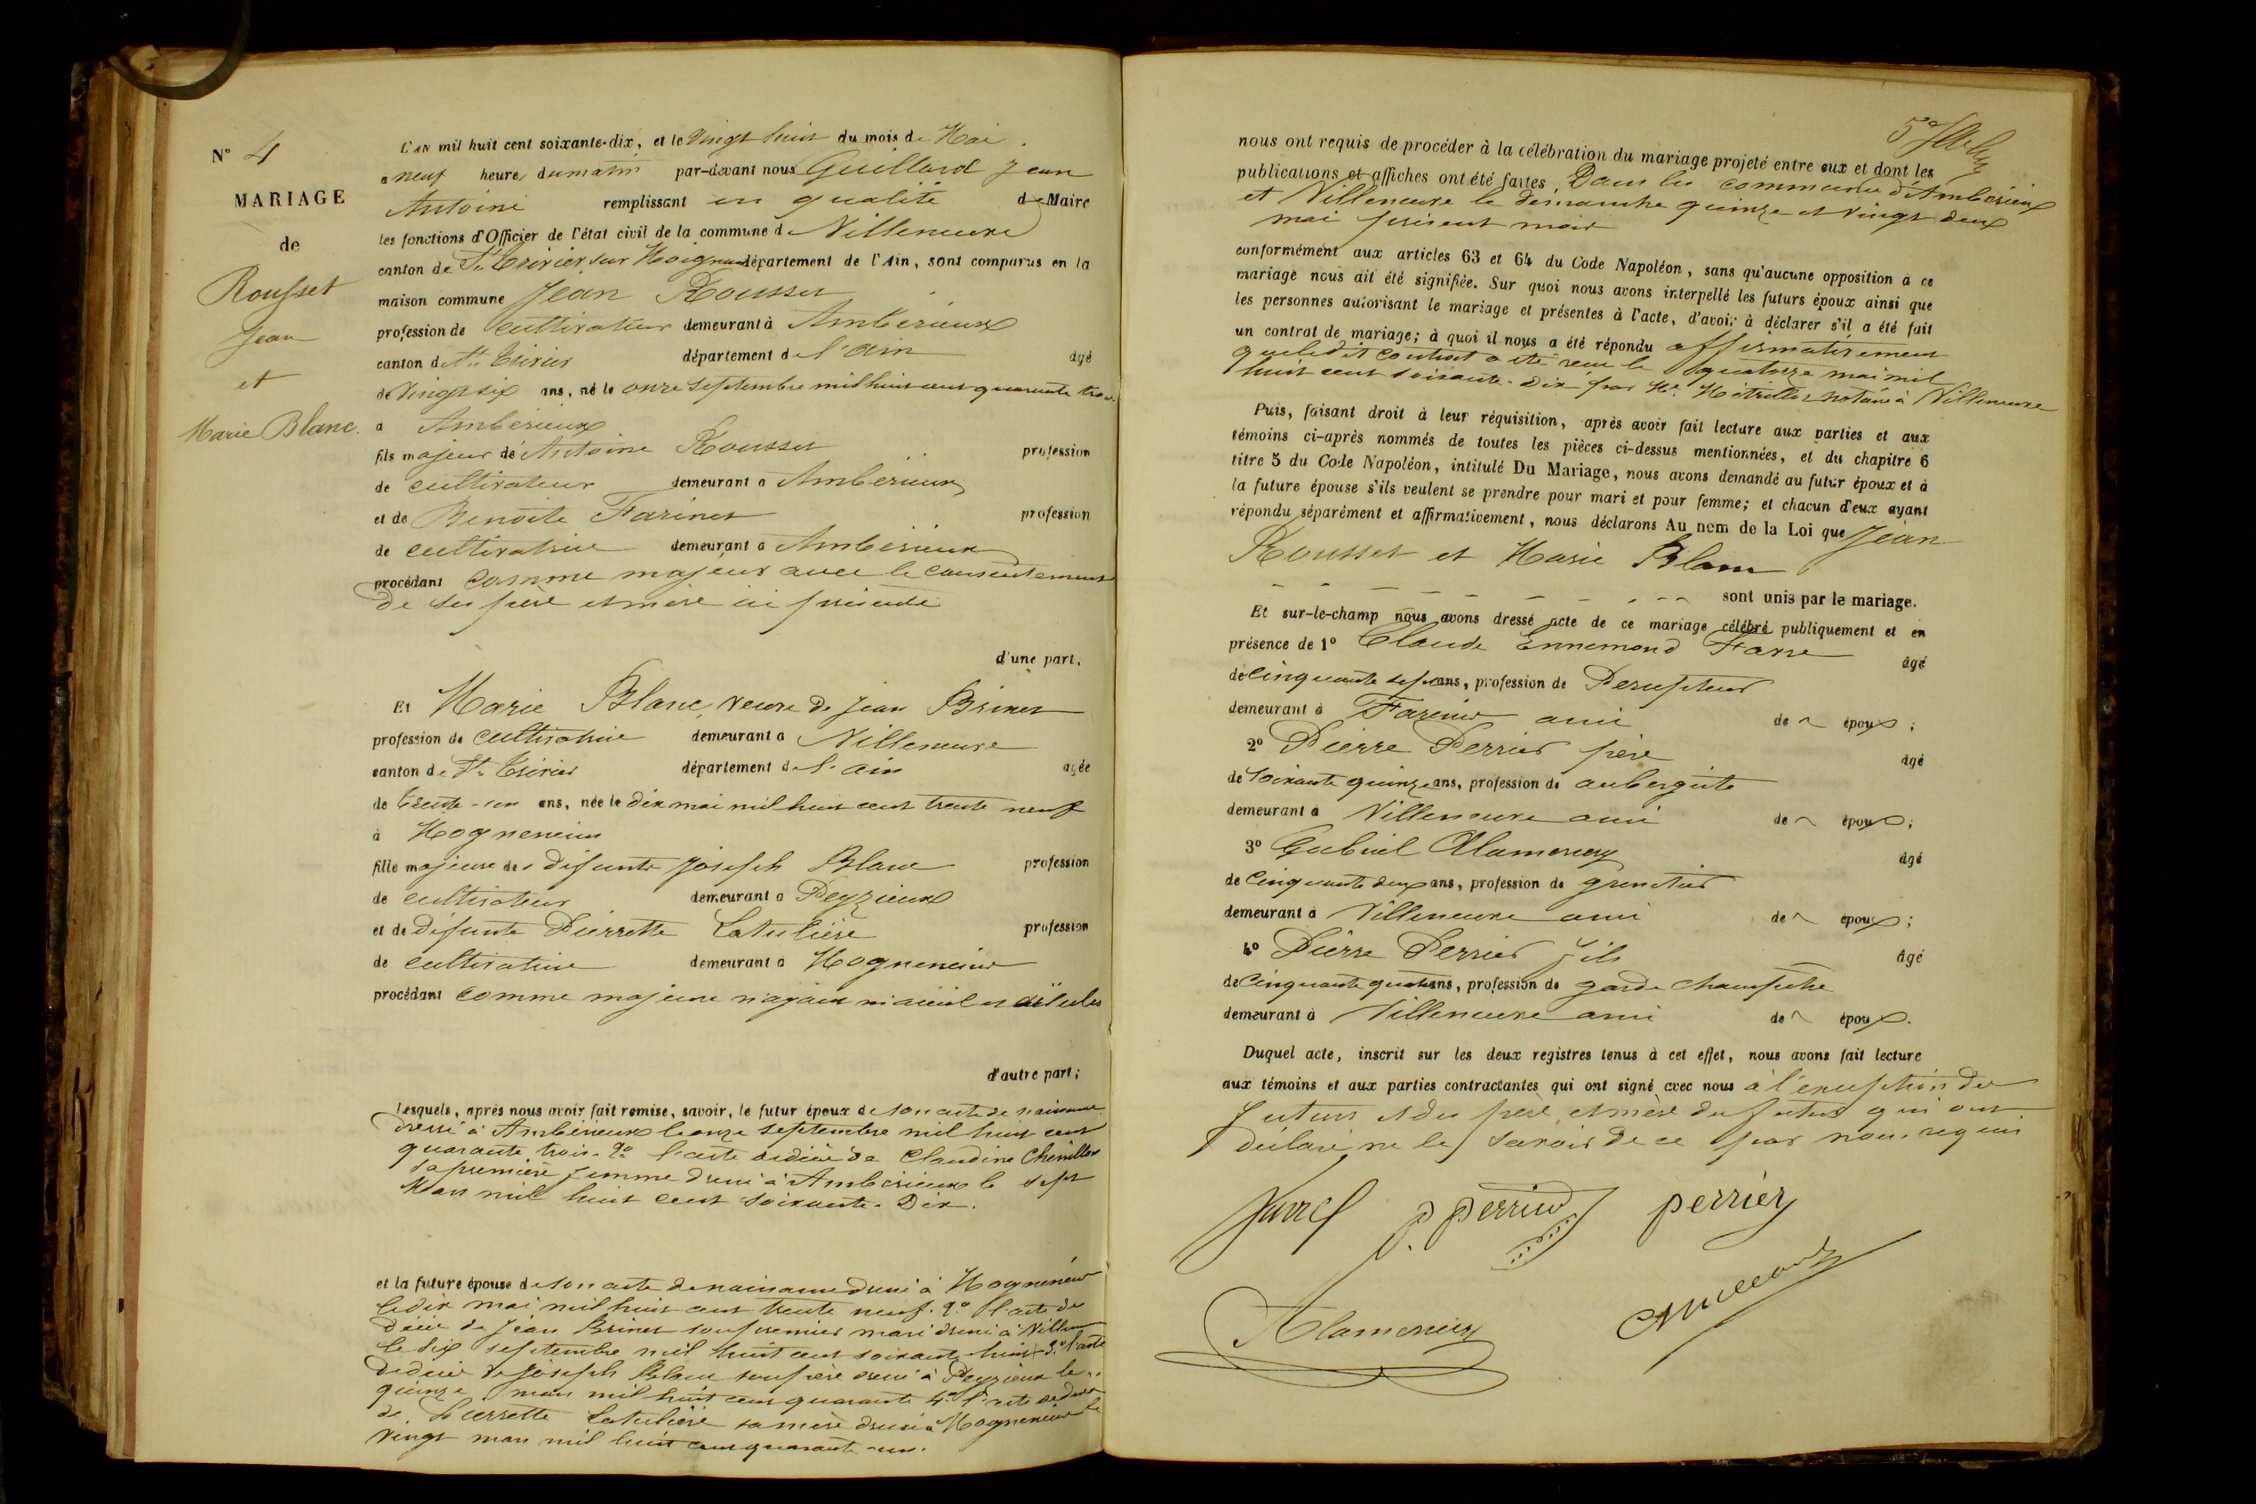 N° 4
MARIAGE
de
Rousset
Jean
et
Marie Blanc.
L'AN mil huit cent soixante-dix, et le vingt huit du mois de Mai
a neuf heures du matin par-devant nous Guillard Jean
Antoine remplissant en qualité de Maire
les fonctions d'Officier de l'état civil de la commune de Villeneuve
canton de St Trivier sur Moignans département de l'Ain, sont comparus en la
maison commune Jean Rousset
profession de cultivateur demeurant à Ambérieux
canton de St Trivier département de l'ain âgé
de vingt six ans, né le onze septembre mil huit cent quarante trois
à Ambérieux
fils majeur de Antoine Rousset profession
de cultivateur demeurant à Ambérieux
et de Benoite Farinet profession
de cultivatrice demeurant à Ambérieux
procédant comme majeur avec le consentement
de ses père et mère ici présents
d'une part;
Et Marie Blanc, veuve de Jean Brinet
profession de cultivatrice demeurant à Villeneuve
canton de St Trivier département de l'ain agée
de trente-un ans, née le dix mai mil huit cent trente neuf
à Mogneneins
fille majeure des défunts Joseph Blanc profession
de cultivateur demeurant à Peyzieux
et de défunte Pierrette Latulière profession
de cultivatrice demeurant à Mogneneins
procédant comme majeure n'ayant ni aïeul ni aïeules
d'autre part;
Lesquels, après nous avoir fait remise, savoir, le futur époux de son acte de naissance
dressé à Ambérieux le onze septembre mil huit cent
quarante trois. 2° l'acte de décès de Claudine Chenillet
sa première femme dressé à Ambérieux le sept
Mars mil huit cent soixante-Dix.
et la future épouse de son acte de naissance dressé à Mogneneins
le dix mai mil huit cent trente neuf. 2° l'acte de
décès de Jean Brinet son premier mari dressé à Villeneuve
le dix septembre mil huit cent soixante huit 3° l'acte
de décès de Joseph Blanc son père dressé à Peyzieux le
quinze mars mil huit cent quarante 4° l'acte de décès
de Pierrette Latulière sa mère dressé à Mogneneins le
vingt mars mil huit cent quarante-un.
nous ont requis de procéder à la célébration du mariage projeté entre eux et dont les
publications et affiches ont été faites, Dans les communes d'Ambérieux
et Villeneuve le dimanche quinze et vingt deux
mai présent mois
conformément aux articles 63 et 64 du Code Napoléon, sans qu'aucune opposition à ce
mariage nous ait été signifiée. Sur quoi nous avons interpellé les futurs époux ainsi que
les personnes autorisant le mariage et présentes à l'acte, d'avoir à déclarer s'il a été fait
un contrat de mariage; à quoi il nous a été répondu affirmativement
que ledit contrat a été reçu le quatorze mai mil
huit cent soixante-dix par Me notaire à Villeneuve
Puis, faisant droit à leur réquisition, après avoir fait lecture aux parties et aux
témoins ci-après nommés de toutes les pièces ci-dessus mentionnées, et du chapitre 6
titre 5 du Code Napoléon, intitulé Du Mariage, nous avons demandé au futur époux et à
la future épouse s'ils veulent se prendre pour mari et pour femme; et chacun d'eux ayant
répondu séparément et affirmativement, nous déclarons Au nom de la Loi que Jean
Rousset et Marie Blanc
sont unis par le mariage.
Et sur-le-champ nous avons dressé acte de ce mariage célébré publiquement et en
présence de 1° Claude Ennemond Farre âgé
de cinquante sept ans, profession de Percepteur
demeurant à Fareins ami de époux;
2° Pierre Perrier père âgé
de soixante quinze ans, profession de aubergiste
demeurant à Villeneuve ami de époux;
3° Gabriel Alamercery âgé
de cinquante deux ans, profession de grenetier
demeurant à Villeneuve ami de époux;
4° Pierre Perrier fils âgé
de cinquante quatre ans, profession de garde champêtre
demeurant à Villeneuve ami de époux.
Duquel acte, inscrit sur les deux registres tenus à cet effet, nous avons fait lecture
aux témoins et aux parties contractantes qui ont signé avec nous à l'exception des
futurs et des père et mère du futur qui ont
déclaré ne le savoir de ce par nous requis
P. perrier perrier